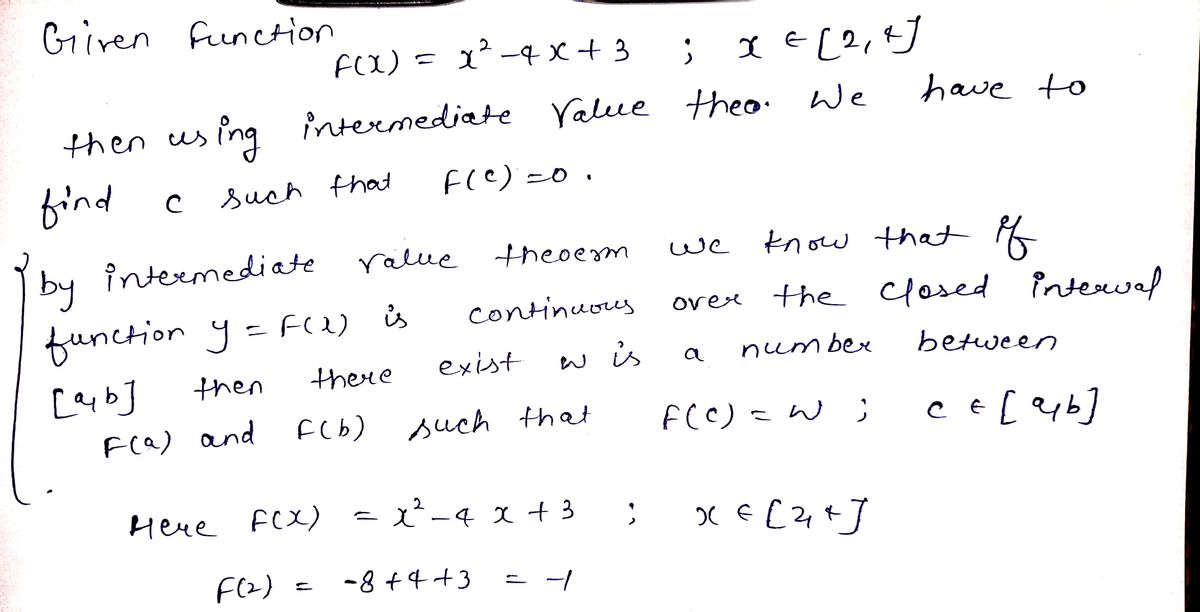 Giiven function
F(x) = x² -4x + 3 ; x ∈ [2,4]
then using intermediate Value theo. We have to
find c such that F(c) =0 .
by intermediate value theoerm we know that if
function y = F(x) is continuous over the closed interval
[a,b] then there exist w is a number between
F(a) and F(b) such that F(c) = w ; c ∈ [a,b]
Here F(x) = x² -4 x + 3 ; x ∈ [2,4]
F(2) = -8 +4 +3 = -1